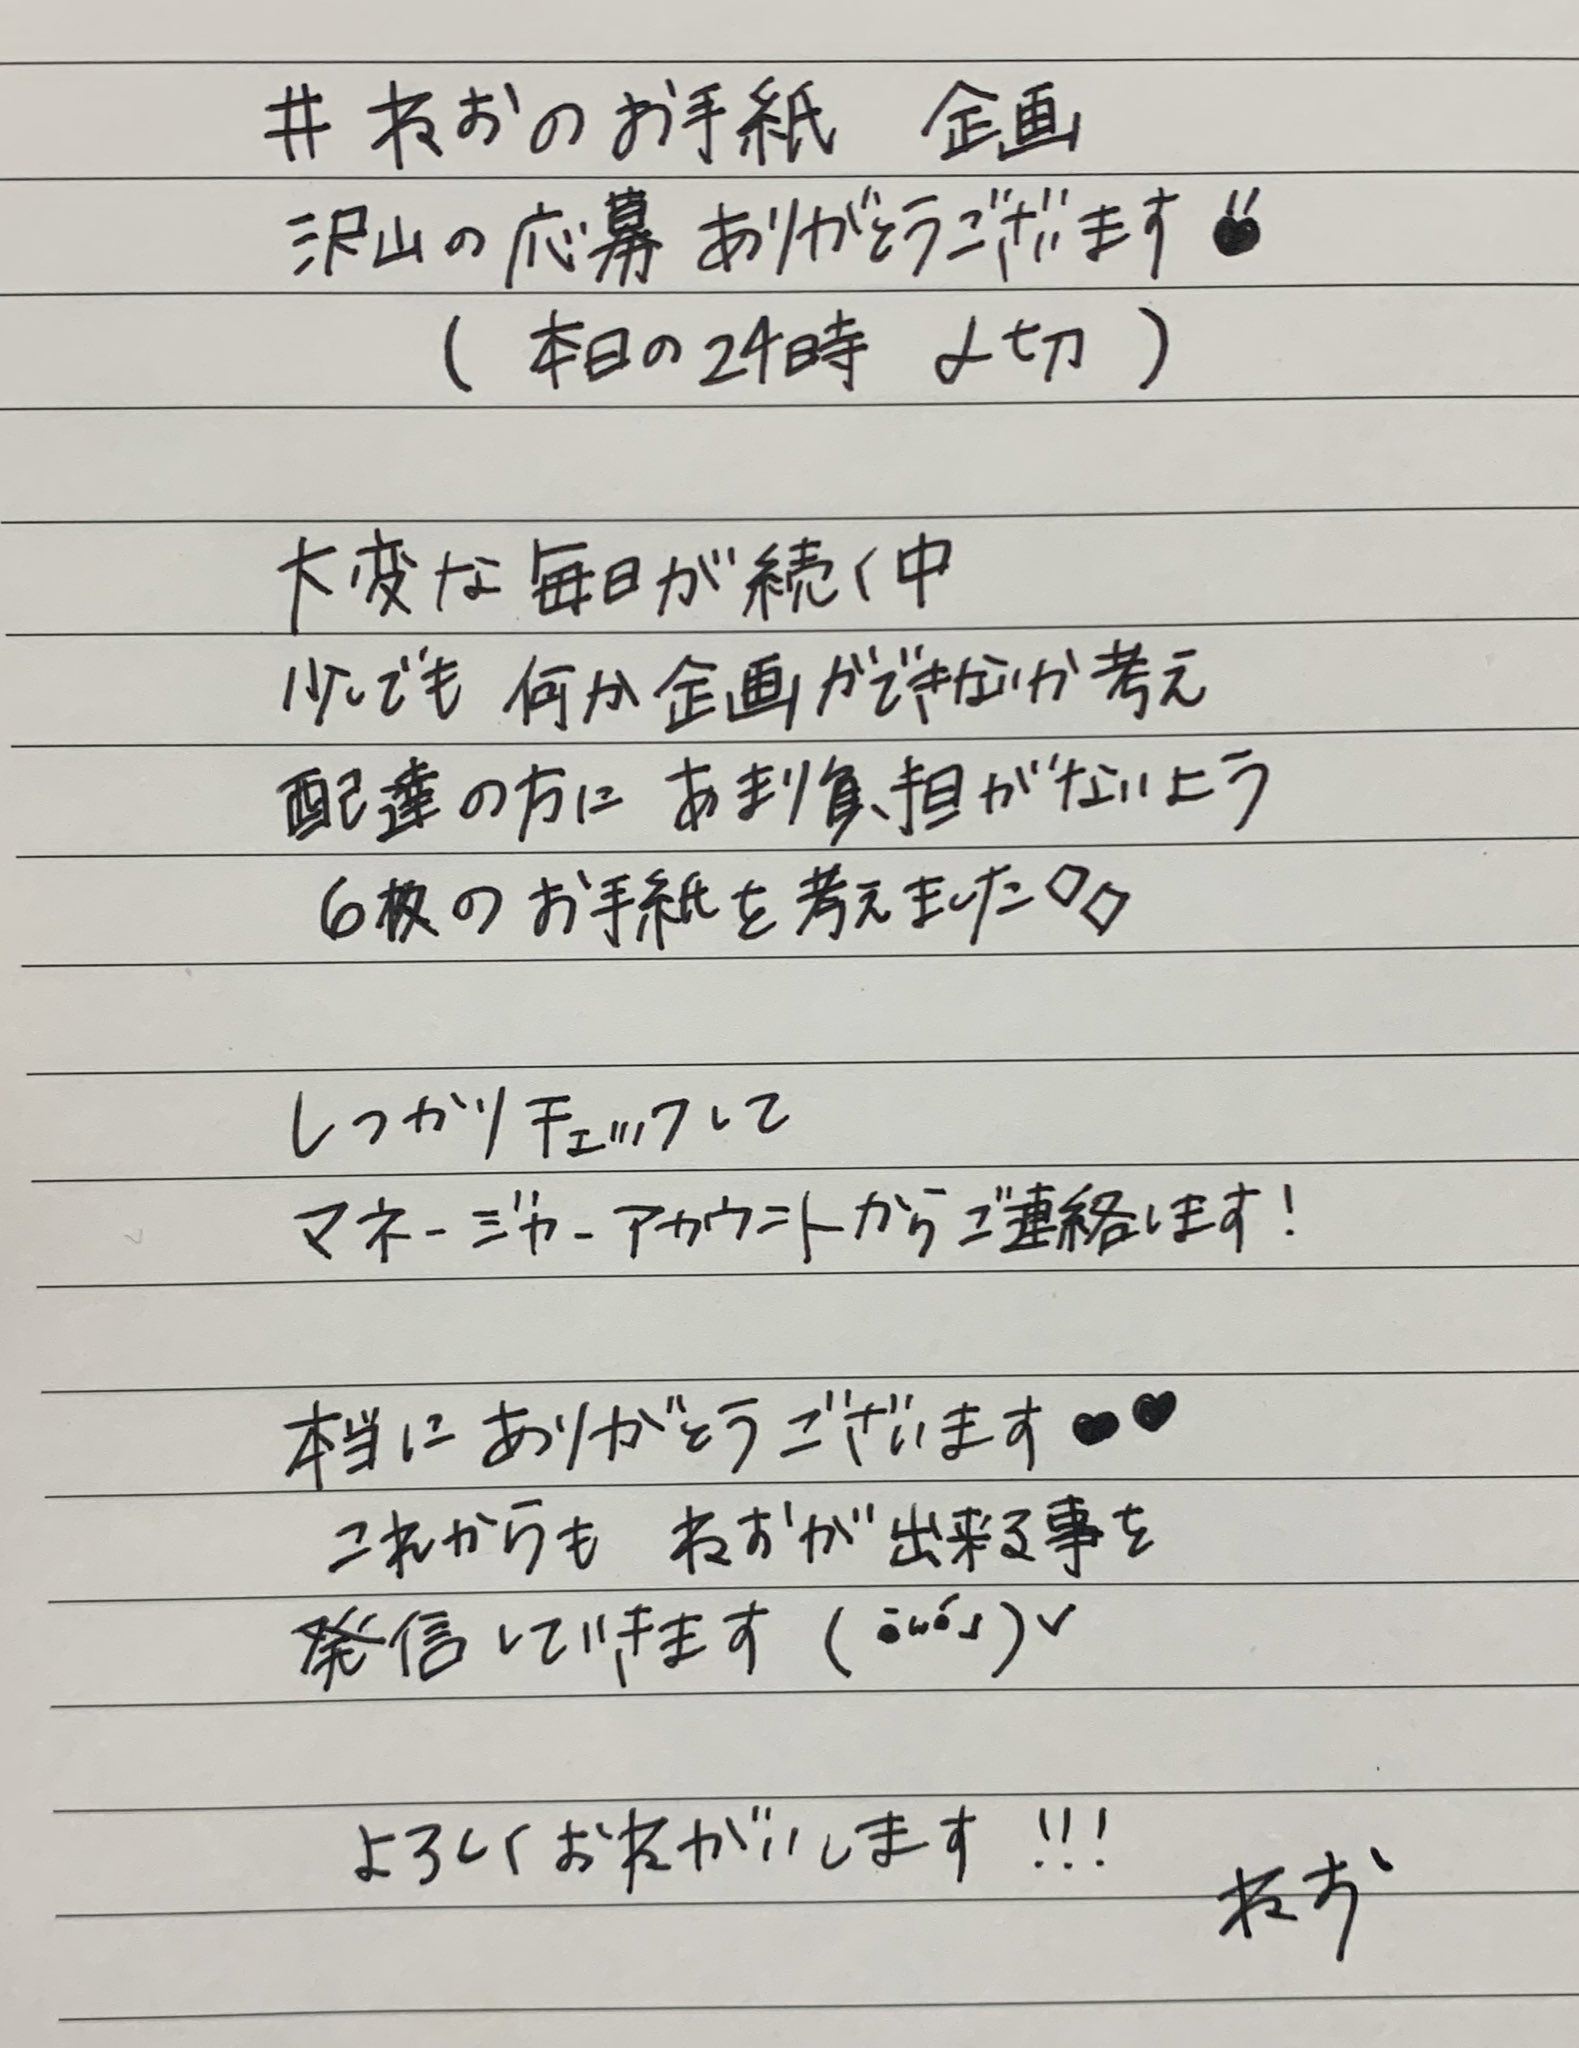 #ねおのお手紙 企画
沢山の応募 ありがとうございます♥
(本日の24時 〆切)
大変な毎日が続く中
少しでも 何か企画ができないか考え
配達の方に あまり負担がないよう
6枚のお手紙を考えました◇◇
しっかりチェックして
マネージャーアカウントからご連絡します!
本当にありがとうございます♥♥
これからも ねおが出来る事を
発信していきます
よろしくおねがいします!!!
ねお